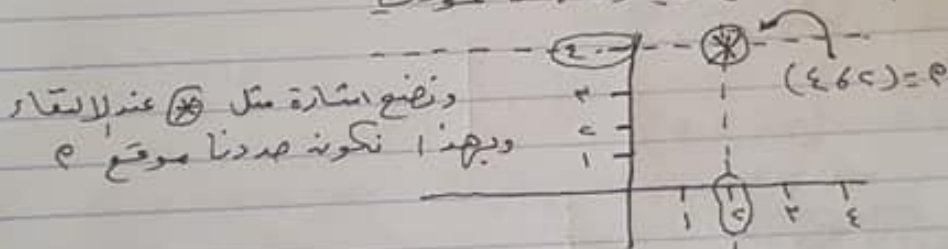 م = (٢ ، ٤)
ونضع اشارة مثل ⊛ عند الالتقاء
وبهذا نكون حددنا موقع م
٤
٣
٢
١
١ ٢ ٣ ٤